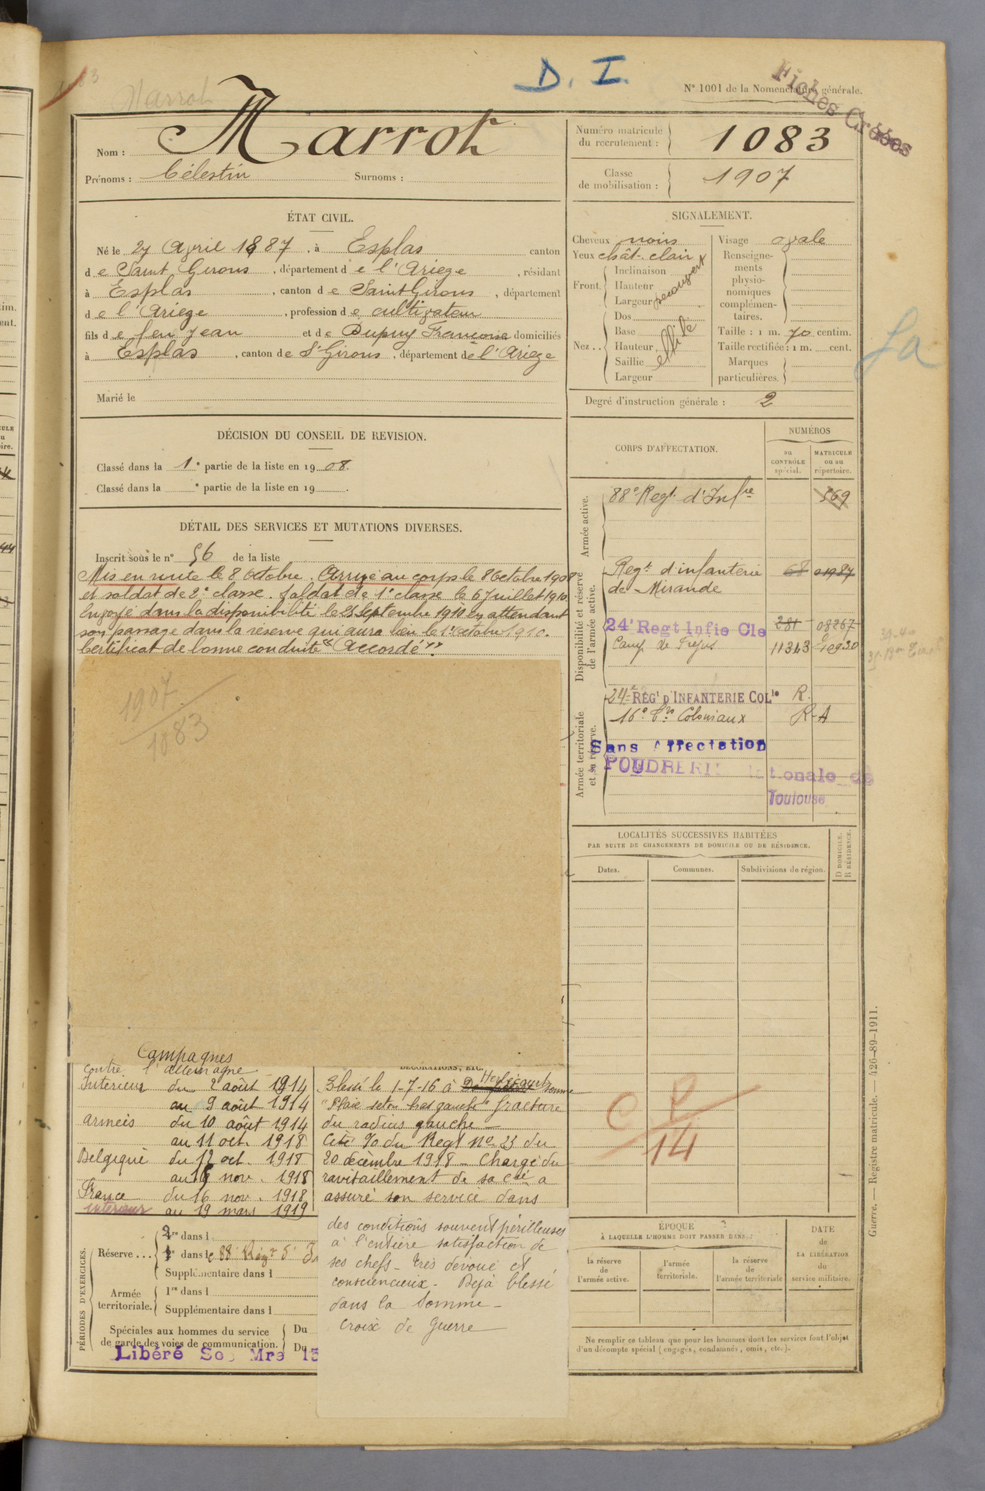 D. I.
N° 1001 de la Nomenclature générale.
Fiches Créées
Marrot
Nom : Marrot
Prénoms : Célestin Surnoms :
Numéro matricule du recrutement : 1083
Classe de mobilisation : 1907
ÉTAT CIVIL.
Né le 27 Avril 1887, à Esplas canton
de Saint Girons, département de l'Ariège, résidant
à Esplas, canton de Saint Girons, département
de l'Ariège, profession de cultivateur
fils de feu Jean et de Dupuy Françoise domiciliés
à Esplas, canton de St Girons, département de l'Ariège
Marié le
SIGNALEMENT.
Cheveux noirs
Yeux chât. clair
Front. Inclinaison
Hauteur
Largeur
Nez.. Dos
Base
Hauteur
Saillie
Largeur
Visage ovale
Renseignements physionomiques complémentaires.
Taille : 1 m. 70 centim.
Taille rectifiée : 1 m. cent.
Marques particulières.
Degré d'instruction générale : 2
DÉCISION DU CONSEIL DE REVISION.
Classé dans la 1e partie de la liste en 1908.
Classé dans la e partie de la liste en 19 .
DÉTAIL DES SERVICES ET MUTATIONS DIVERSES.
Inscrit sous le n° 56 de la liste
Mis en route le 8 Octobre. Arrivé au corps le 8 Octobre 1908
et soldat de 2e classe. Soldat de 1e classe le 6 juillet 1910
Envoyé dans la disponibilité le 25 Septembre 1910 en attendant
son passage dans la réserve qui aura lieu le 1er octobre 1910.
Certificat de bonne conduite "Accordé".
1907
1083
CORPS D'AFFECTATION.
NUMÉROS
au CONTRÔLE spécial.
MATRICULE ou au répertoire.
Armée active.
88e Regt d'Infie 569
Disponibilité et réserve de l'armée active.
Regt d'infanterie
de Mirande
24e Regt Infie Cle 281 08267
Camp de Fréjus 11313
Armée territoriale et sa réserve.
24e REGt D'INFANTERIE COLle R.
16e Trs Coloniaux R A
Sans Affectation
POUDRERIE Nationale de
Toulouse
LOCALITÉS SUCCESSIVES HABITÉES
PAR SUITE DE CHANGEMENTS DE DOMICILE OU DE RÉSIDENCE.
Dates. Communes. Subdivisions de région. D. DOMICILE. R. RÉSIDENCE.
Campagnes
contre l'allemagne
Intérieur du 2 août 1914
au 9 août 1914
armées du 10 août 1914
au 11 oct. 1918
Belgique du 12 oct. 1918
au 15 nov. 1918
France du 16 nov. 1918
intérieur au 19 mars 1919
DÉCORATIONS, ETC.
Blessé le 1-7-16 à
"Plaie séton bras gauche" fracture
du radius gauche
Cité O du Regt No 23 du
20 décembre 1918 - Chargé du
ravitaillement de sa Cie a
assuré son service dans
des conditions souvent périlleuses
à l'entière satisfaction de
ses chefs - très dévoué et
consciencieux - Déjà blessé
dans la Somme -
Croix de Guerre
C P
14
PÉRIODES D'EXERCICES.
Réserve... 1re dans l
2e dans le 88e Régt d'
Supplémentaire dans l
Armée territoriale. 1re dans l
Supplémentaire dans l
Spéciales aux hommes du service de garde des voies de communication. Du
Du
Libéré
ÉPOQUE
À LAQUELLE L'HOMME DOIT PASSER DANS :
la réserve de l'armée active.
l'armée territoriale.
la réserve de l'armée territoriale
DATE de LA LIBÉRATION du service militaire.
Ne remplir ce tableau que pour les hommes dont les services font l'objet
d'un décompte spécial (engagés, condamnés, omis, etc.).
Guerre. — Registre matricule. — 426-89-1911.